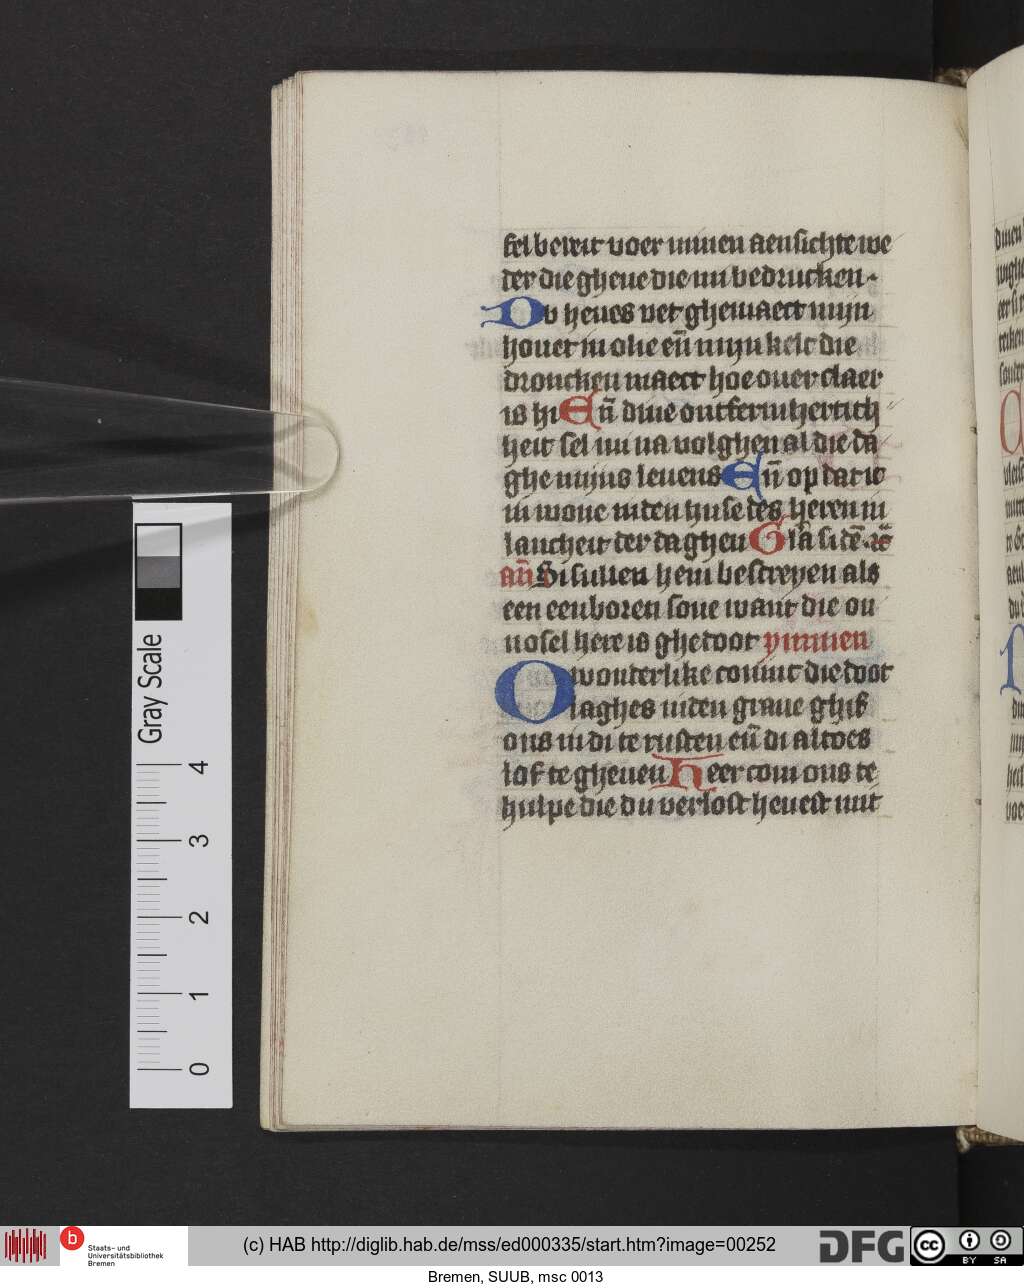 sel bereit voer minen aensichte we
der die gheue die mi bedrucken
Du heues vet ghemaect mijn
houet in olie eñ mijn kelc die
droncken maect hoe ouer claer
is hi Eñ dine ontfermhertich
heit sel mi na volghen al die da
ghe mijns leuens Eñ op dat ic
in wone inden huse des heren in
lancheit der daghen Gl'ia si dē
añ Si sullen hem bescreyen als
een eenboren sone want die on
nosel here is ghedoot ymnen
O wonderlike coninc die doot
laghes inden graue ghif
ons in di te rusten eñ di altoes
lof te gheuen Heer com ons te
hulpe die du verlost heuest mit
Gray Scale
4
3
2
1
0
b
Staats- und
Universitätsbibliothek
Bremen
(c) HAB http://diglib.hab.de/mss/ed000335/start.htm?image=00252
DFG
cc
BY SA
Bremen, SUUB, msc 0013